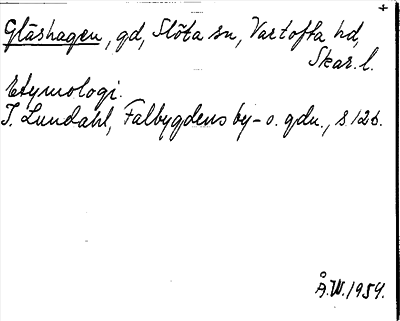 Gläshagen, gd, Slöta sn, Vartofta hd,
Skar. l.
Etymologi.
I. Lundahl, Falbygdens by- o. gdn., s 126.
Å.W. 1954.